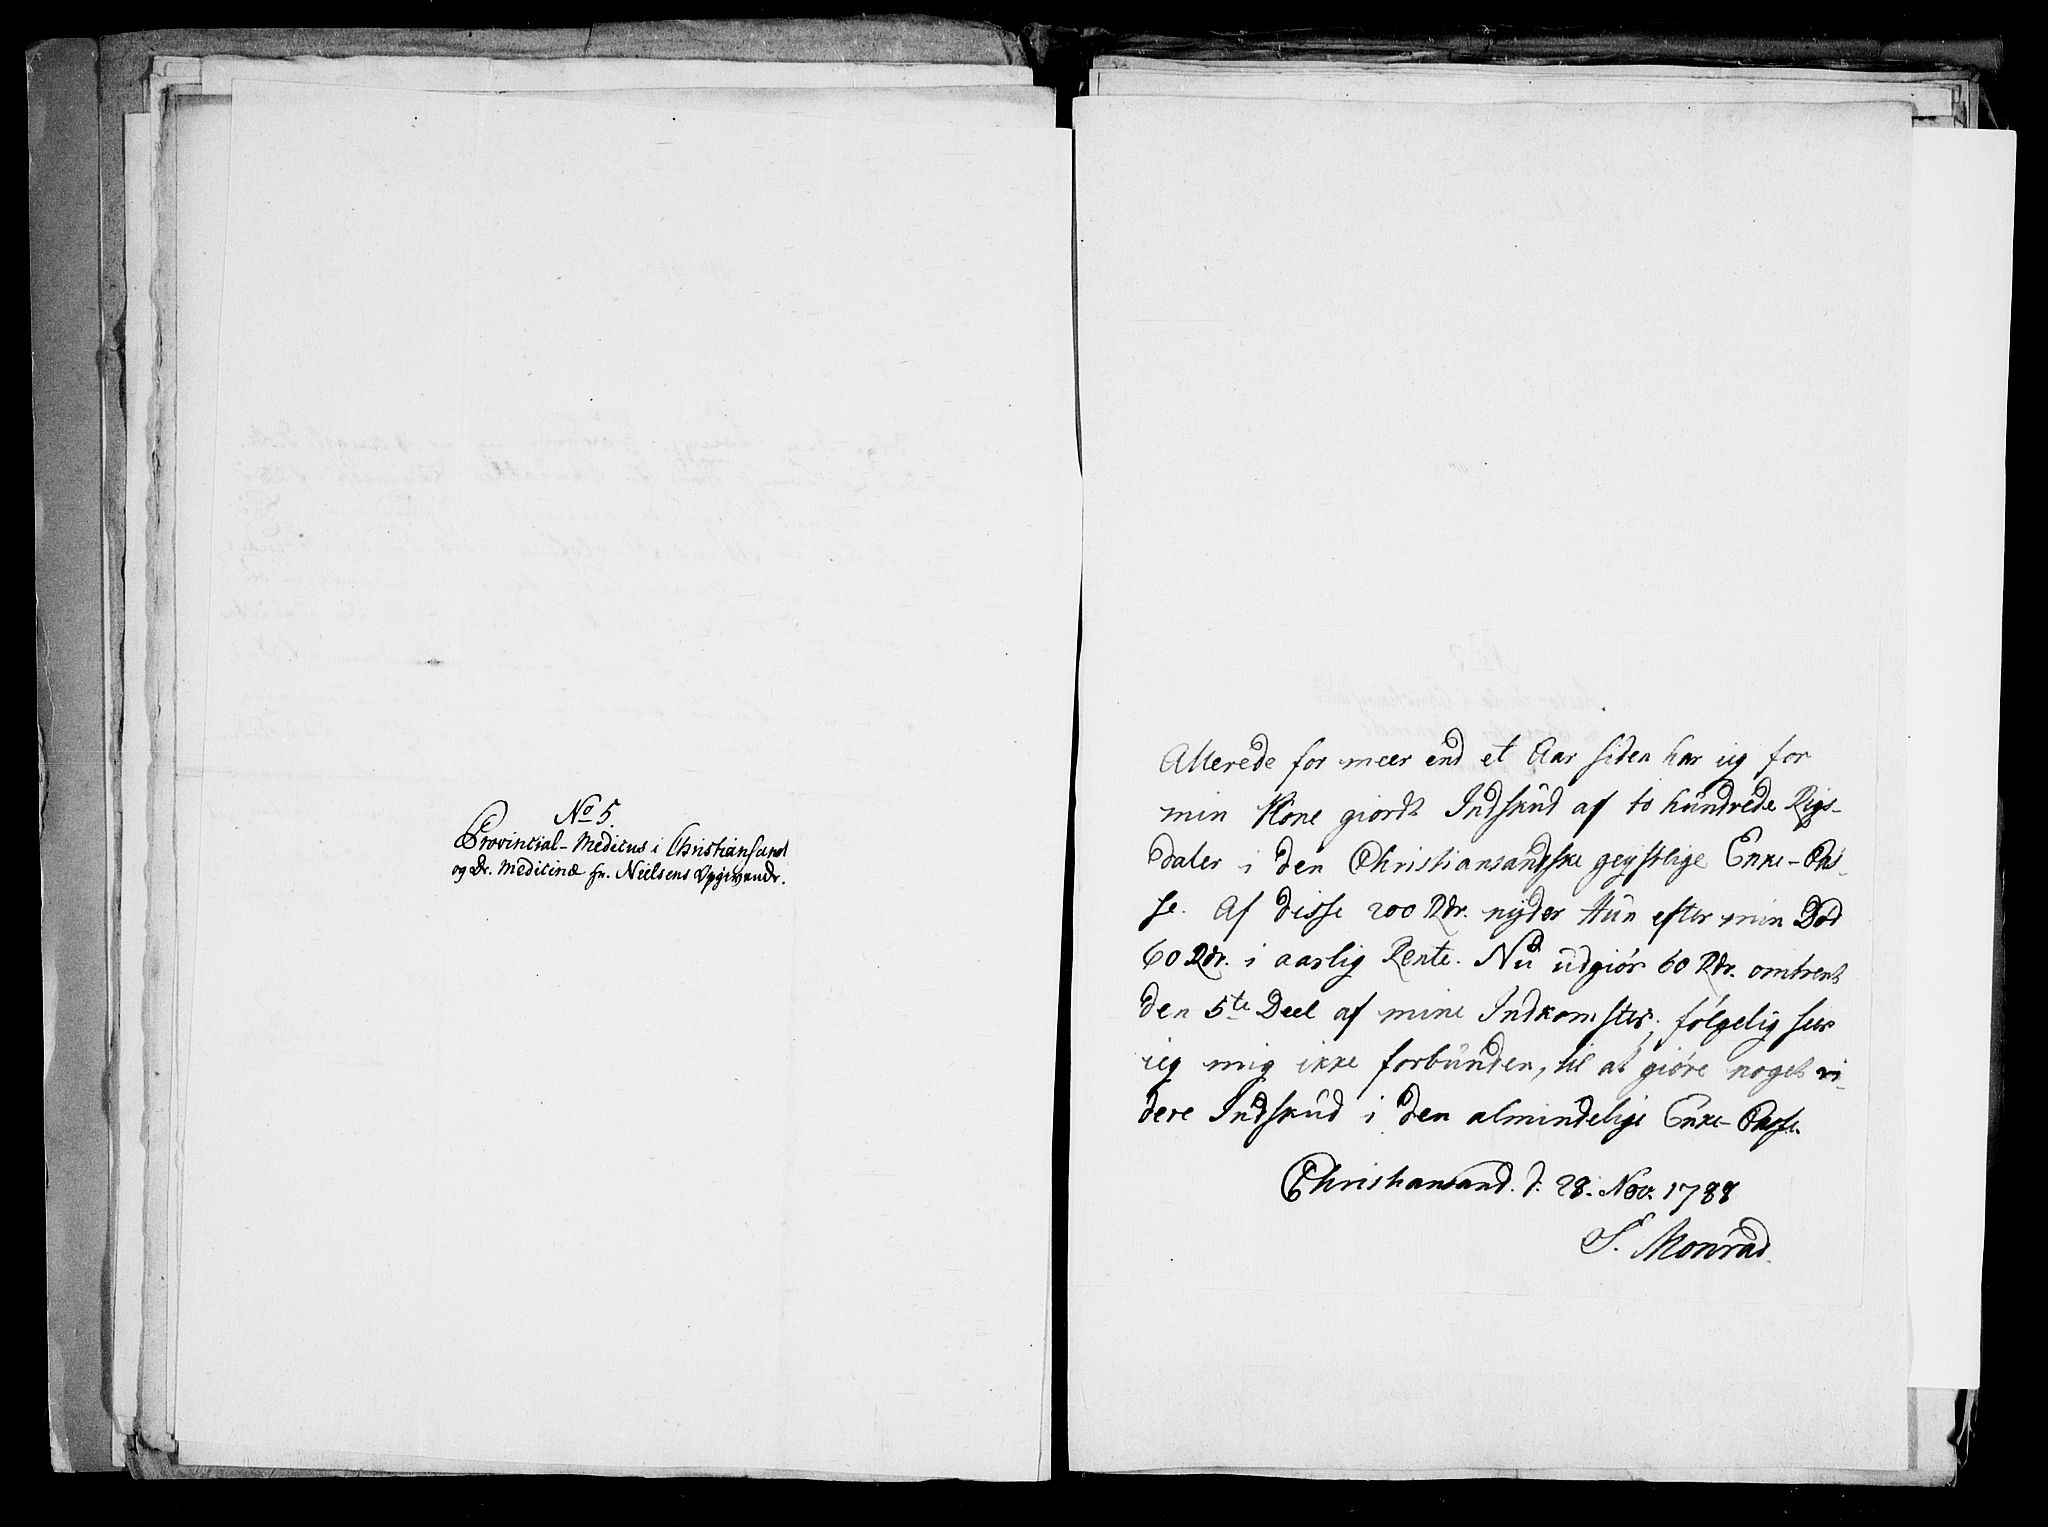 No 5.
Provincial-Medicus i Christiansand
og Dr. Medicinæ Hr. Nielsens Opgivende.
Allerede for meer end et Aar siden har ieg for
min Kone giordt Indskud af to hundrede Rigs-
daler i den Christiansandske geystlige Enke-Cas-
se. Af disse 200 Rdr. nyder Hun efter min Død
60 Rdr. i aarlig Rente. Nu udgiør 60 Rdr. omtrent
den 5te Deel af mine Indkomster; følgelig seer
ieg mig ikke forbunden, til at giøre noget vi-
dere Indskud i den almindelige Enke-Casse.
Christiansand. d. 28. Nov. 1788
S. Monrad.